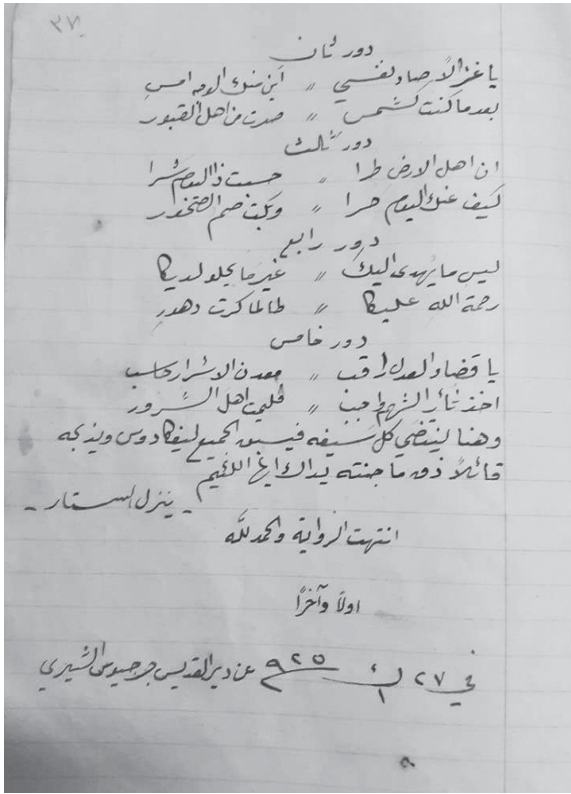 ٣٧
دور ثان
يا غزالاً صاد نفسي „ أين منك الوجه امسِ
بعد ما كنت كشمس „ صرت من اهل القبور
دور ثالث
ان اهل الارض طرا „ حسبت ذا اليوم شرا
كيف عنك اليوم صبرا „ وبكت صم الصخور
دور رابع
ليس ما يُهدى اليك „ غير ما يحلو لديكا
رحمة الله عليكا „ طالما كرت دهور
دور خامس
يا قضاء العدل راقب „ معدن الاشرار حاسب
اخذ ثأر الشهم واجب „ فليمت اهل الشرور
وهنا ينتضي كل سيفه فيسبق الجميع ليفكادوس ويذبحه
قائلاً ذق ما جنته يداك ايها اللئيم
- ينزل الستار -
انتهت الرواية والحمد لله
اولاً وآخرًا
في ٢٧ ك١ ٩٢٥ عن دير القديس جرجيوس الشيري